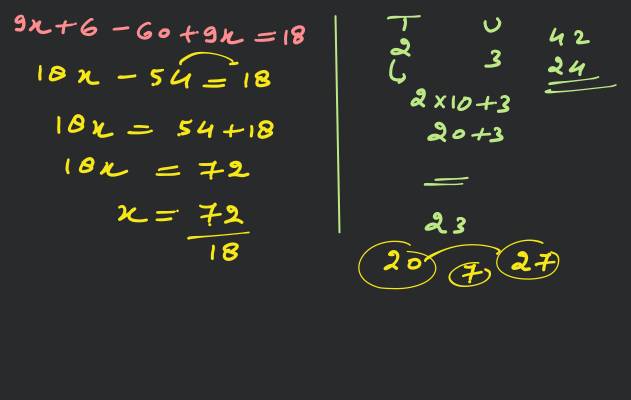 9x+6-60+9x=18
18x-54=18
18x=54+18
18x=72
x=72
18
T U
2 3
2×10+3
20+3
=
23
42
24
20 7 27